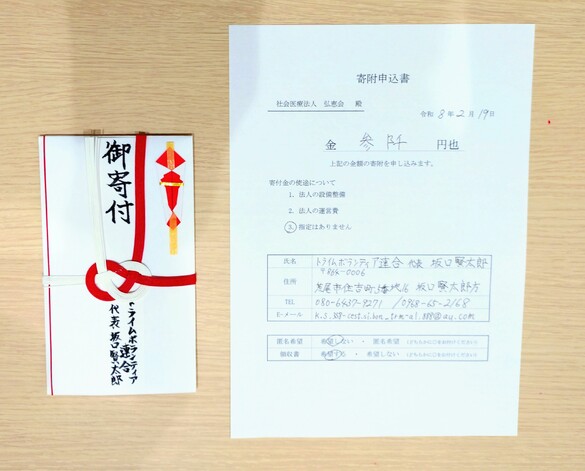 御寄付
トライムボランティア
連合
代表 坂口賢太郎
寄附申込書
社会医療法人 弘恵会 殿
令和 8 年 2 月 19 日
金 参阡 円也
上記の金額の寄附を申し込みます。
寄付金の使途について
1. 法人の設備整備
2. 法人の運営費
3. 指定はありません
氏名 トライムボランティア連合 代表 坂口賢太郎
〒864-0006
住所 坂口賢太郎方
TEL 080-6437-9271 / 0968-65-2168
E-メール
匿名希望 希望しない ・ 匿名希望
領収書 希望する ・ 希望しない